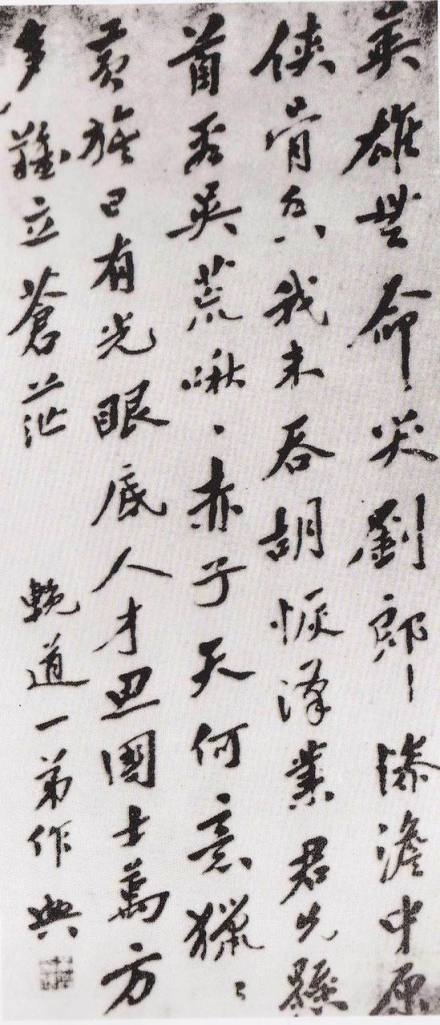 英雄無命哭劉郎慘澹中原
俠骨香我未吞胡恢漢業君先懸
首看吳荒啾々赤子天何意獵々
黃旗日有光眼底人才思國士萬方
多難立蒼茫
輓道一弟作 興